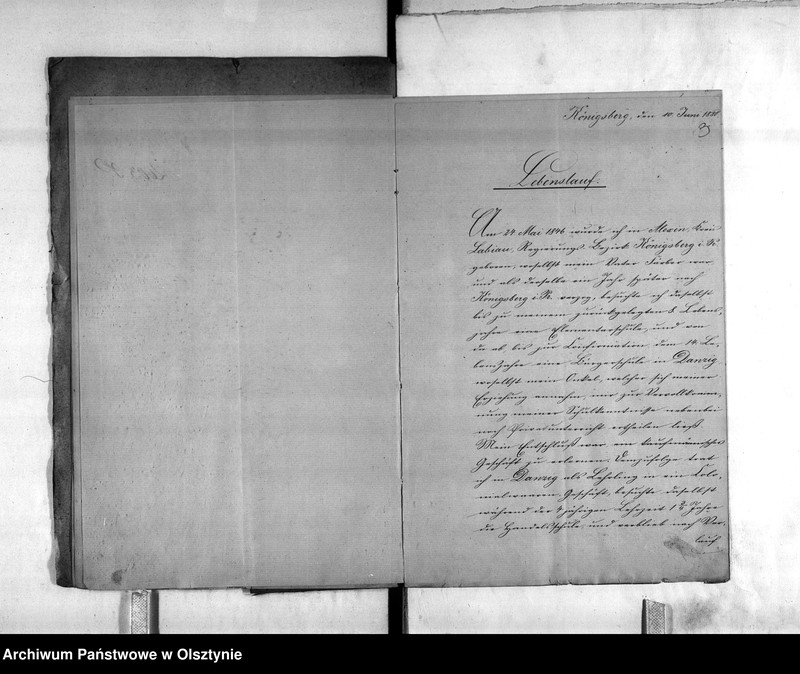 Königsberg, den 10. Juni 18
Lebenslauf.
Am 24 Mai 1846 wurde ich in Kreis
Labiau, Regierungs-Bezirk Königsberg i. Pr.
geboren, woselbst mein Vater Färber war
und als derselbe ein Jahr später nach
Königsberg i. Pr. verzog, besuchte ich daselbst
bis zu meinem zurückgelegten 8 Lebens-
jahre eine Elementarschule, und von
da ab bis zur Confirmation, dem 14. Le-
bensjahre eine Bürgerschule in Danzig
woselbst mein Onkel, welcher sich meiner
Erziehung annahm, mir zur Vervollkomm-
nung meiner Schulkenntnisse nebenbei
noch Privatunterricht ertheilen ließ.
Mein Entschluß war, ein kaufmännisches
Geschäft zu erlernen. Demzufolge trat
ich in Danzig als Lehrling in ein Colo-
nialwaaren-Geschäft, besuchte daselbst
während der 4 jährigen Lehrzeit 1½ Jahre
die Handelsschule, und verblieb nach Ver-
lauf
Archiwum Państwowe w Olsztynie